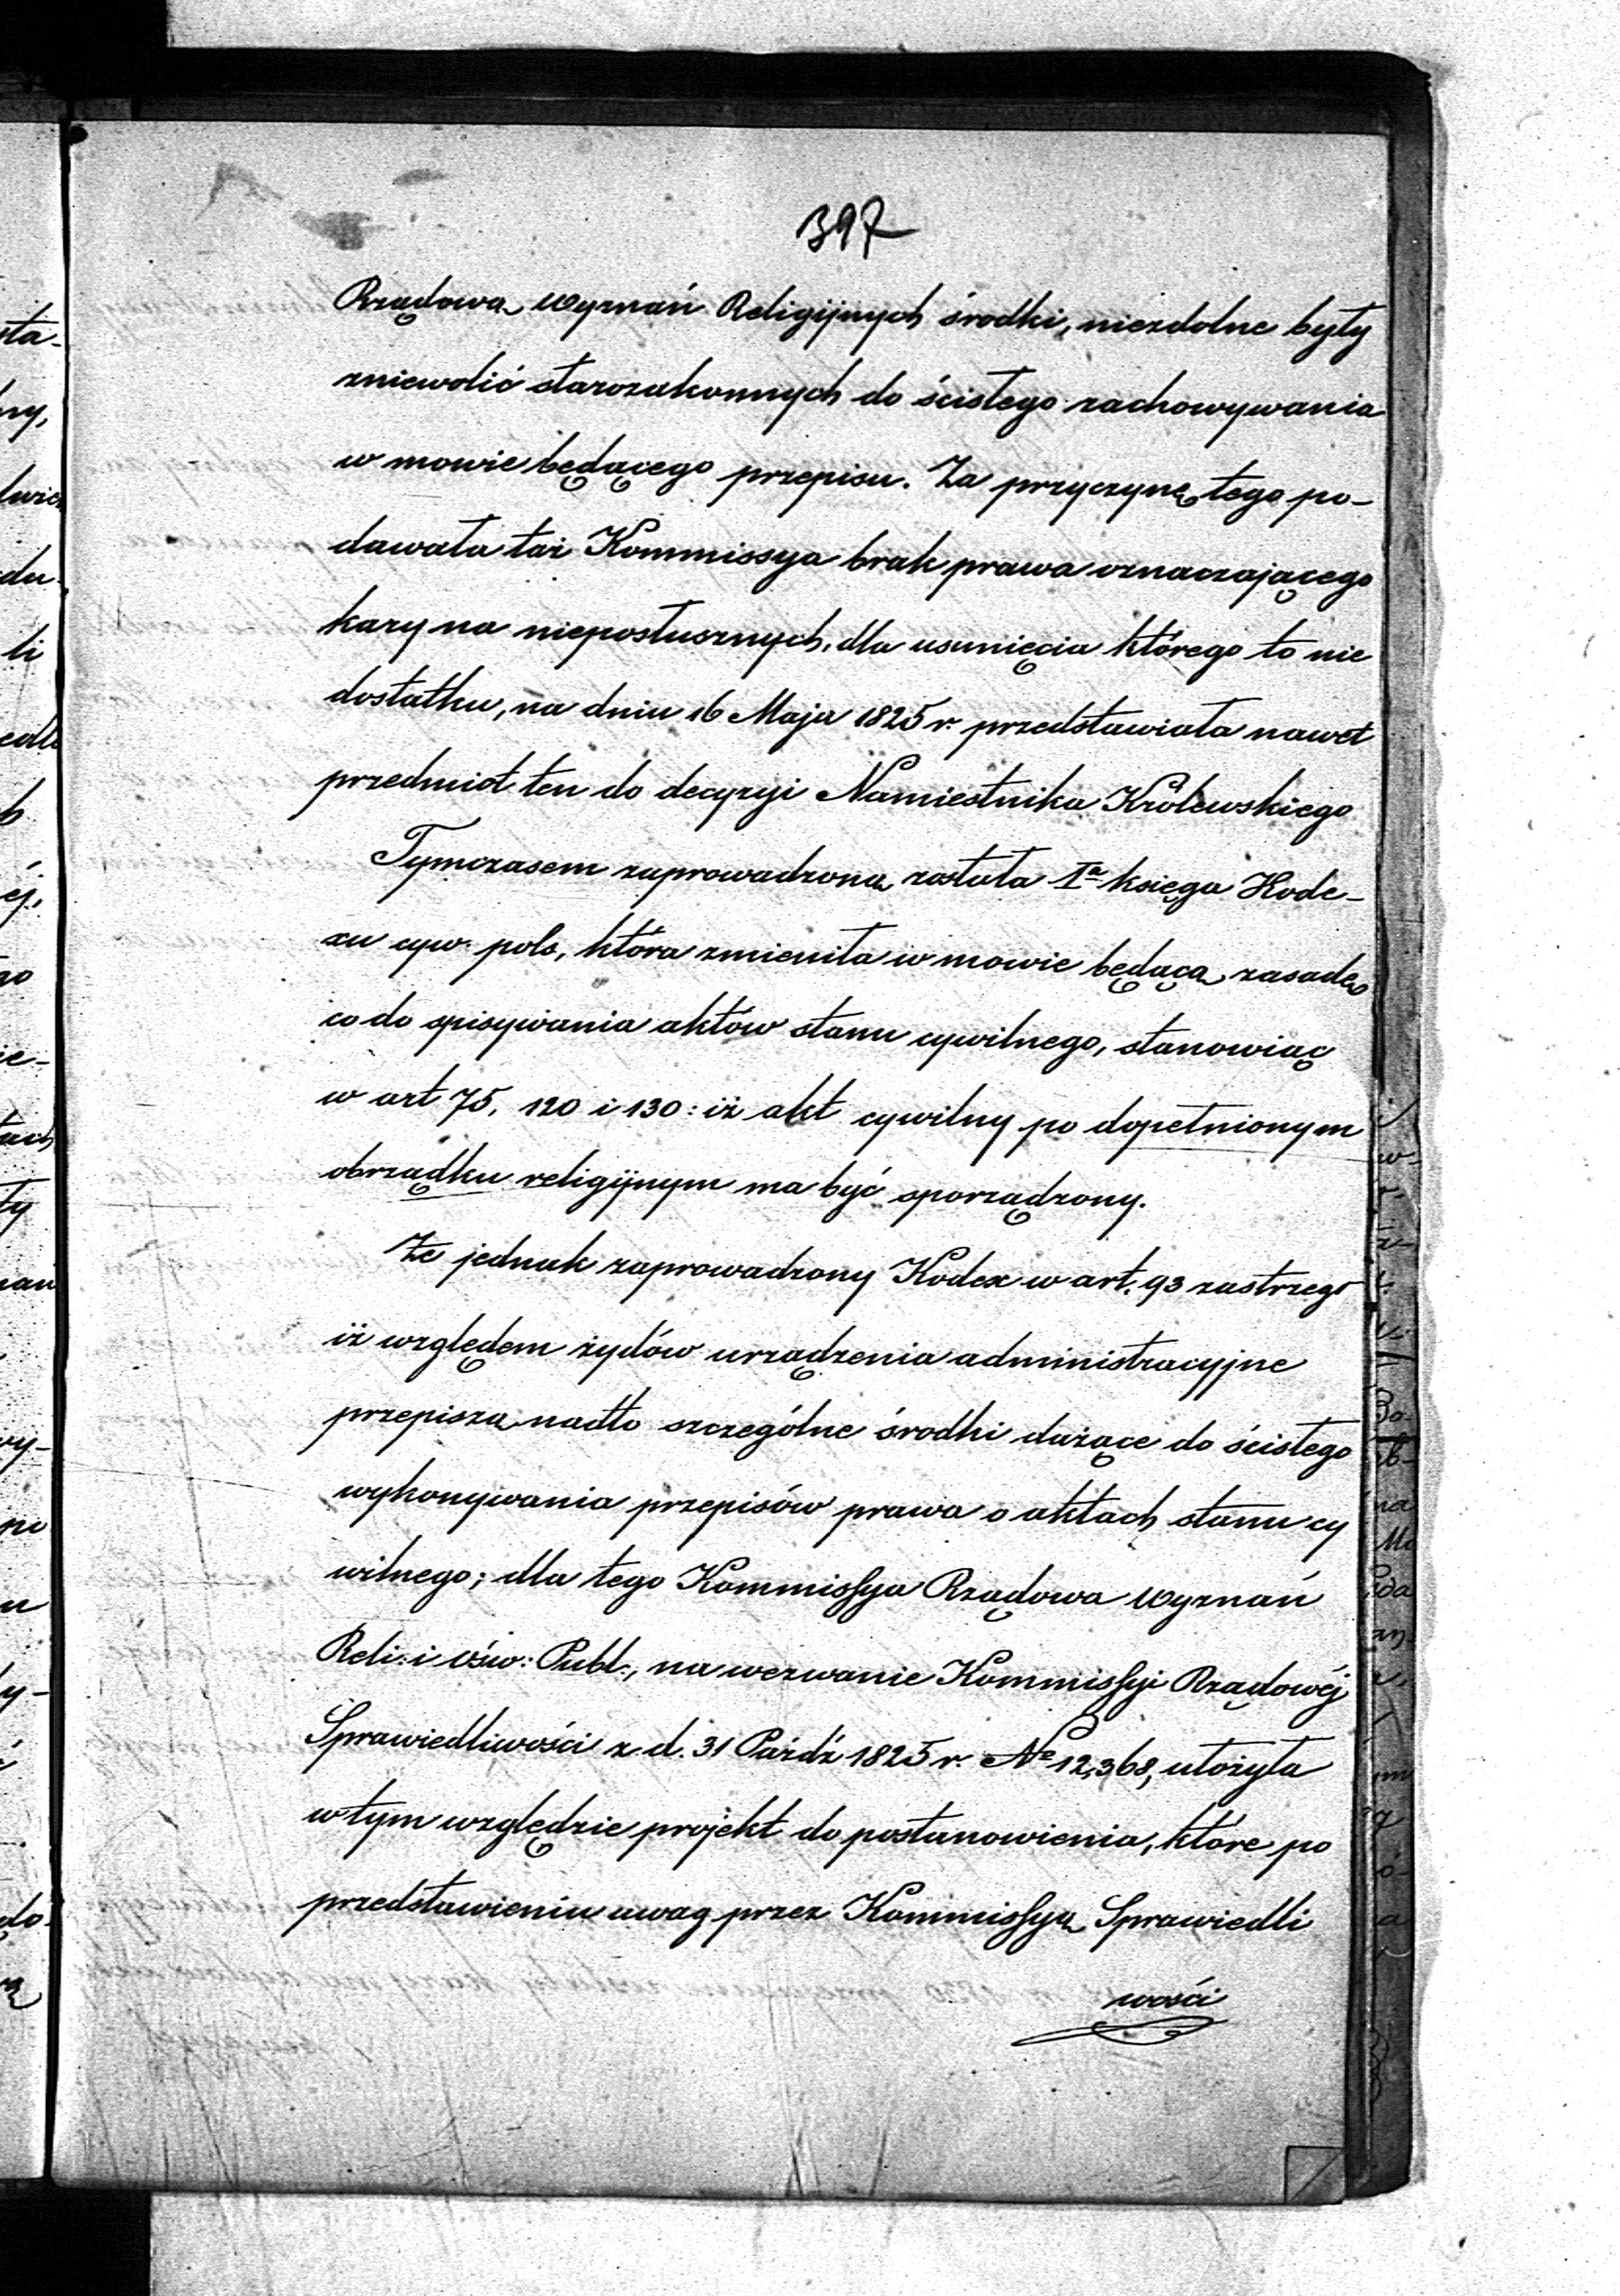 397
Rządową Wyznań Religijnych środki, niezdolne były
zniewolić starozakonnych do ścisłego zachowywania
w mowie będącego przepisu. Za przyczynę tego po-
dawała taż Kommissya brak prawa oznaczającego
kary na nieposłusznych, dla usunięcia którego to nie
dostatku, na dniu 16 Maja 1825 r. przedstawiała nawet
przedmiot ten do decyzyi Namiestnika Królewskiego
Tymczasem zaprowadzoną została Iª księga Kode-
xu cyw. pols, która zmieniła w mowie będącą zasadę
co do spisywania aktów stanu cywilnego, stanowiąc
w art 75, 120 i 130: iż akt cywilny po dopełnionym
obrządku religijnym ma być sporządzony.
Że jednak zaprowadzony Kodex w art. 93 zastrzegł
iż względem żydów urządzenia administracyjne
przepiszą nadto szczególne środki dążące do ścisłego
wykonywania przepisów prawa o aktach stanu cy
wilnego; dla tego Kommissya Rządowa Wyznań
Reli: i Ośw: Publ:, na wezwanie Kommissyi Rządowéj
Sprawiedliwości z d. 31 Paźdź 1825 r. Nº 12,368, ułożyła
w tym względzie projekt do postanowienia, które po
przedstawieniu uwag przez Kommissyą Sprawiedli
wości